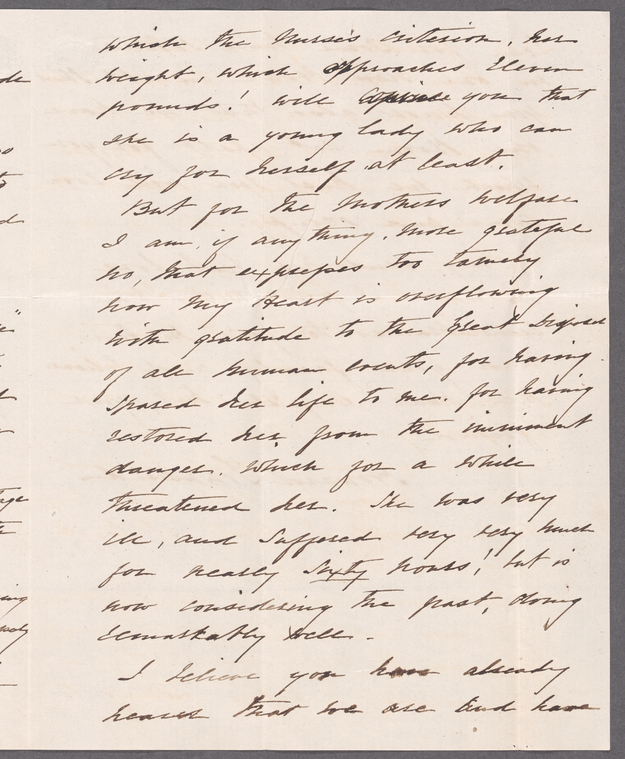 which the Nurse's Criterion, her
weight, which approaches Eleven
pounds! will convince you that
she is a young lady who can
cry for herself at least.
But for the Mothers welfare
I am, if any thing, more grateful
no, that expresses too tamely
how my Heart is overflowing
with gratitude to the Great Disposer
of all human events, for having
spared her life to me. for having
restored her from the imminent
danger. which for a while
threatened her. She was very
ill, and suffered very very much
for nearly Sixty hours! but is
now considering the past, doing
remarkably well.
I believe you have already
heard that we are and have